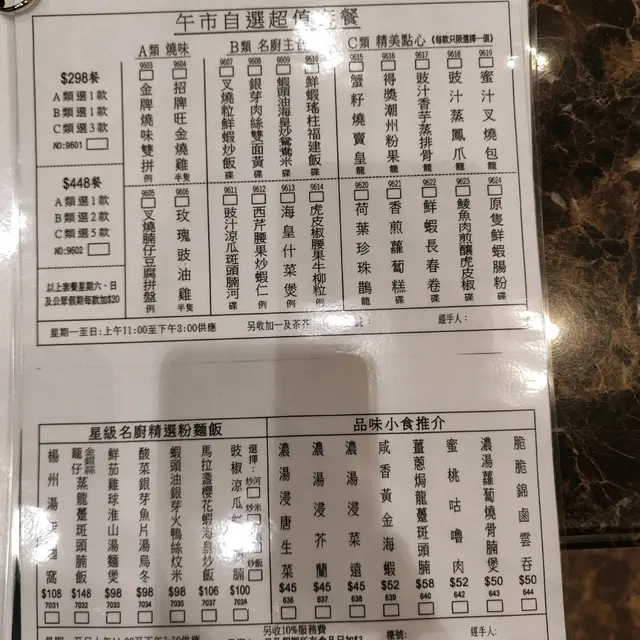 午市自選超值套餐
$298餐
A類選1款
B類選1款
C類選3款
NO:9601
$448餐
A類選1款
B類選2款
C類選5款
NO:9602
以上套餐星期六、日
及公眾假期每款加$20
A類 燒味
9603 金牌燒味雙拼 例
9604 招牌旺金燒雞 半隻
9605 叉燒腩仔豆腐拼盤 例
9606 玫瑰豉油雞 半隻
B類 名廚主
9607 叉燒粒鮮蝦炒飯 碟
9608 銀芽肉絲雙面黃 碟
9609 蝦頭油海皇炒鴛鴦米 碟
9610 鮮蝦瑤柱福建飯 碟
9611 豉汁涼瓜斑頭腩河 碟
9612 西芹腰果炒蝦仁 例
9613 海皇什菜煲 例
9614 虎皮椒腰果牛柳粒 例
C類 精美點心 (每款只限選擇一個)
9615 蟹籽燒賣皇 籠
9616 得獎潮州粉果 籠
9617 豉汁香芋蒸排骨 籠
9618 豉汁蒸鳳爪 籠
9619 蜜汁叉燒包 籠
9620 荷葉珍珠鷄 籠
9621 香煎蘿蔔糕 碟
9622 鮮蝦長春卷 碟
9623 鯪魚肉煎釀虎皮椒 碟
9624 原隻鮮蝦腸粉 碟
星期一至日:上午11:00至下午3:00供應
另收加一及茶芥
號:
經手人:
星級名廚精選粉麵飯
楊州湯 窩 $108 7031
金銀蒜龍仔蒸龍躉斑頭腩飯 $148 7032
鮮茄雞球淮山湯麵煲 $98 7033
酸菜銀芽魚片湯烏冬 $98 7034
蝦頭油銀芽火鴨絲炆米 $98 7035
馬拉盞櫻花蝦海皇炒飯 $106 7037
豉椒涼瓜 腩 $100 7038
選擇:
炒河
炒米
炒飯
品味小食推介
濃湯浸唐生菜 $45 636
濃湯浸芥蘭 $45 637
濃湯浸菜遠 $45 638
咸香黃金海蝦 $52 639
薑蔥焗龍躉斑頭腩 $58 640
蜜桃咕嚕肉 $52 642
濃湯蘿蔔燒骨腩煲 $50 643
脆脆錦鹵雲吞 $50 644
另收10%服務費
檯號:
經手人: